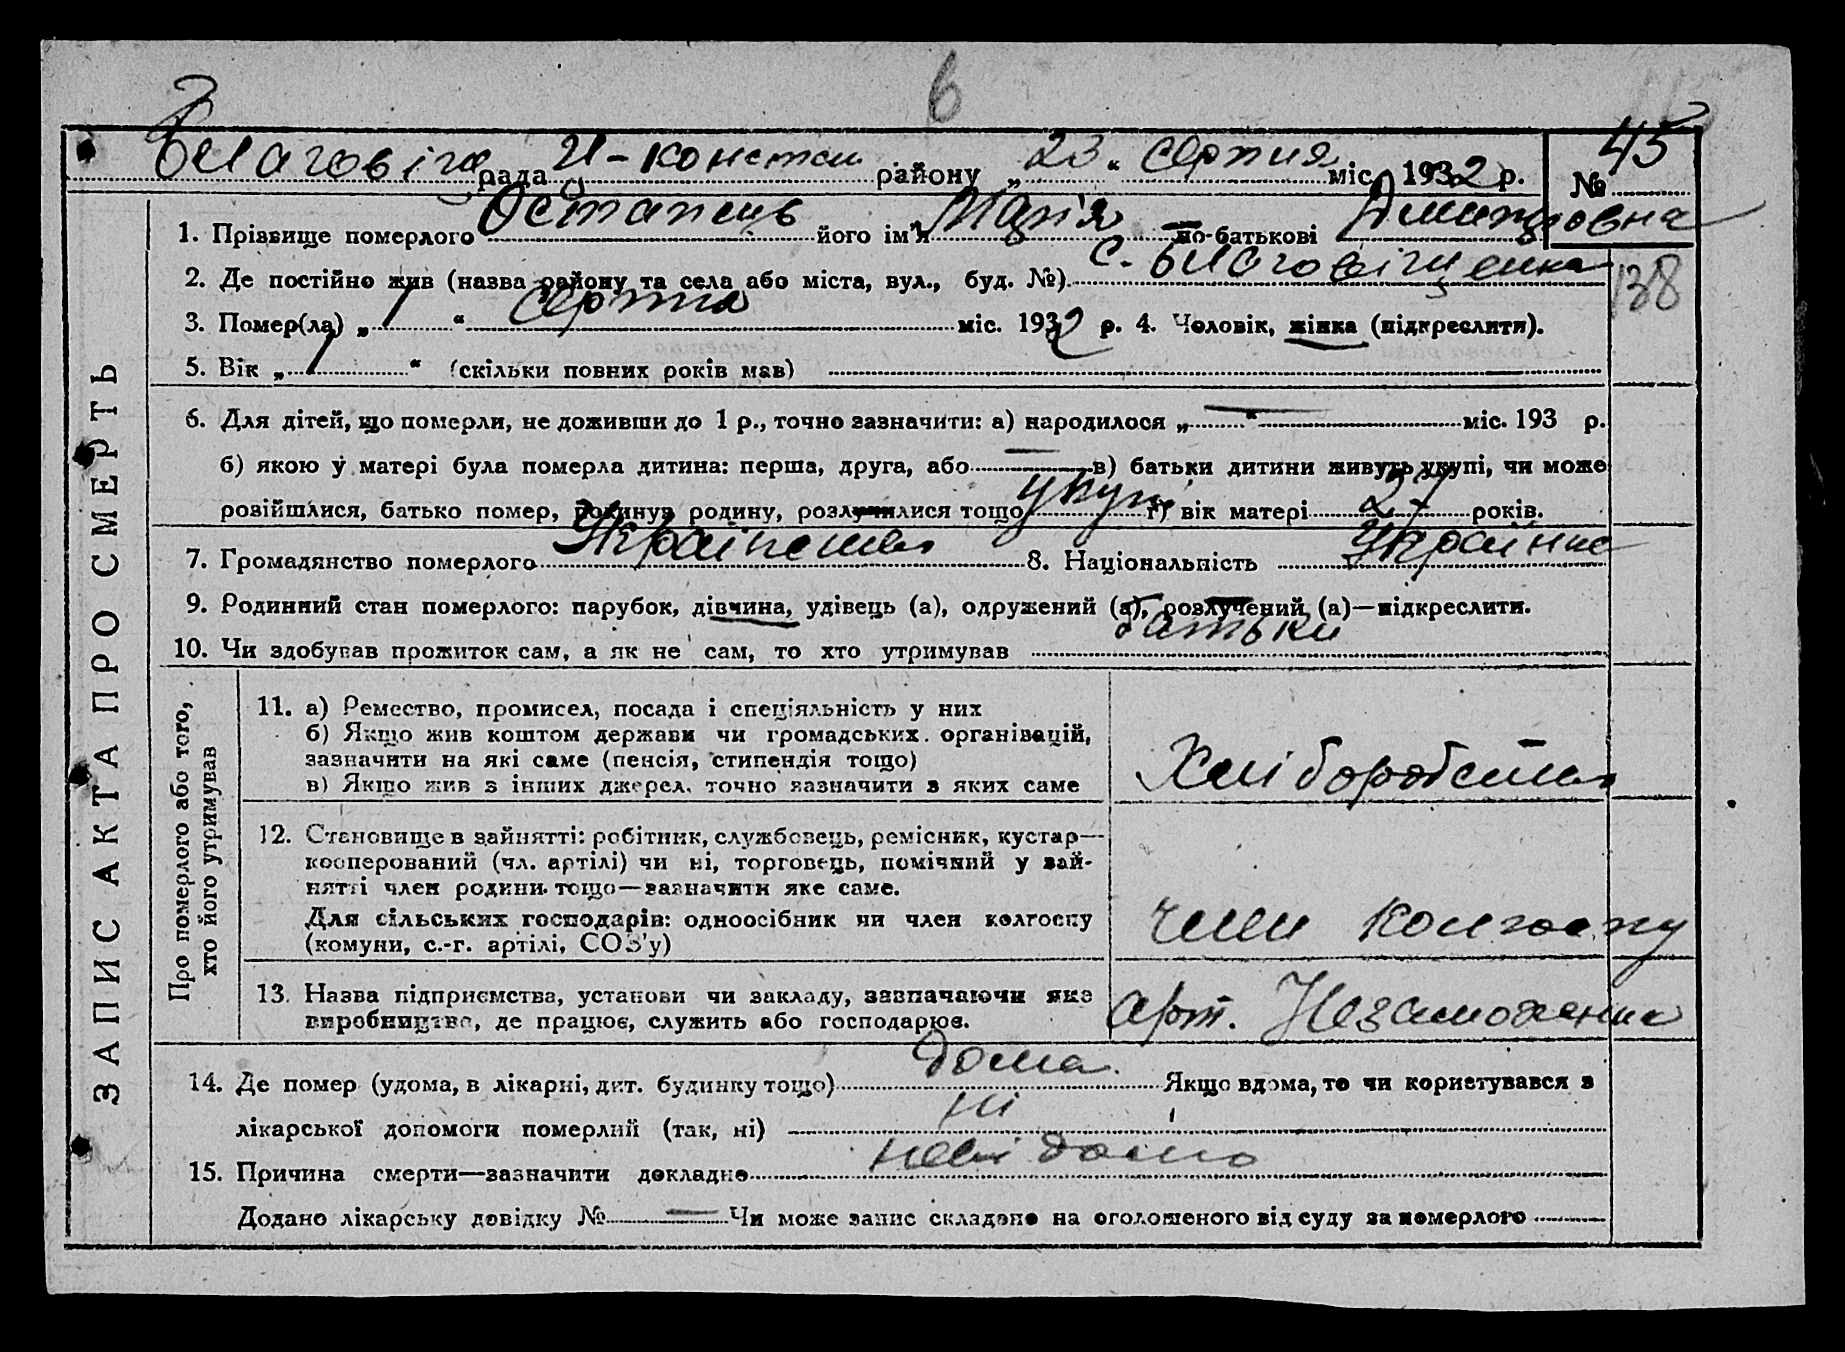 6
Благовіще рада Н-Констан району „23“ серпня міс. 1932 р. № 45
1. Прізвище померлого Остапець його ім'я Марія по-батькові Дмитровна
2. Де постійно жив (назва району та села або міста, вул., буд. №) с. Благовіщенка
138
3. Помер(ла) „1“ серпня міс. 1932 р. 4. Чоловік, жінка (підкреслити).
5. Вік „1“ (скільки повних років мав)
6. Для дітей, що померли, не доживши до 1 р., точно зазначити: а) народилося „—“ міс. 193 р.
б) якою у матері була померла дитина: перша, друга, або — в) батьки дитини живуть укупі, чи може
розійшлися, батько помер, покинув родину, розлучилися тощо укупі г) вік матері 27 років.
7. Громадянство померлого Українська 8. Національність Українка
9. Родинний стан померлого: парубок, дівчина, удівець (а), одружений (а), розлучений (а)—підкреслити.
10. Чи здобував прожиток сам, а як не сам, то хто утримував батьки
ЗАПИС АКТА ПРО СМЕРТЬ
Про померлого або того,
хто його утримував
11. а) Ремество, промисел, посада і спеціяльність у них
б) Якщо жив коштом держави чи громадських організацій,
зазначити на які саме (пенсія, стипендія тощо)
в) Якщо жив з інших джерел, точно зазначити з яких саме
Хліборобство
12. Становище в зайнятті: робітник, службовець, ремісник, кустар—
кооперований (чл. артілі) чи ні, торговець, помічний у зай-
нятті член родини тощо—зазначити яке саме.
Для сільських господарів: одноосібник чи член колгоспу
(комуни, с.-г. артілі, СОЗ'у)
член колгоспу
13. Назва підприємства, установи чи закладу, зазначаючи яке
виробництво, де працює, служить або господарює.
арт. Незаможник
14. Де помер (удома, в лікарні, дит. будинку тощо) дома. Якщо вдома, то чи користувався з
лікарської допомоги померлий (так, ні) ні
15. Причина смерти—зазначити докладно невідомо
Додано лікарську довідку № — Чи може запис складено на оголошеного від суду за померлого